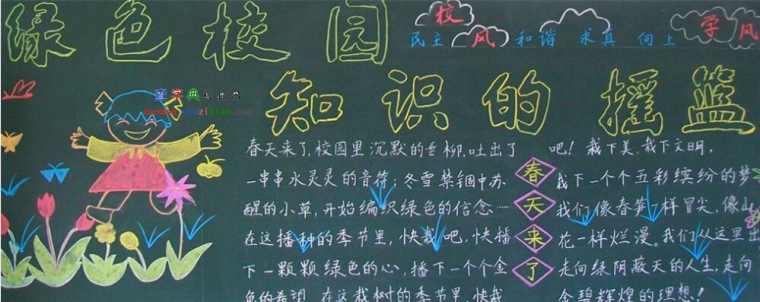 绿色校园
校风
民主 和谐 求真 向上
学风
知识的摇篮
春天来了,校园里沉默的垂柳,吐出了
一串串水灵灵的音符;冬雪禁锢中苏
醒的小草,开始编织绿色的信念…
在这播种的季节里,快栽吧,快播
下一颗颗绿色的心,播下一个个金
色的希望,在这栽树的季节里,快栽
春天来了
吧!栽下美,栽下文明,
栽下一个个五彩缤纷的梦
我们像春笋一样冒尖,像山
花一样烂漫。我们从这里出
走向绿阴蔽天的人生,走向
金碧辉煌的理想!